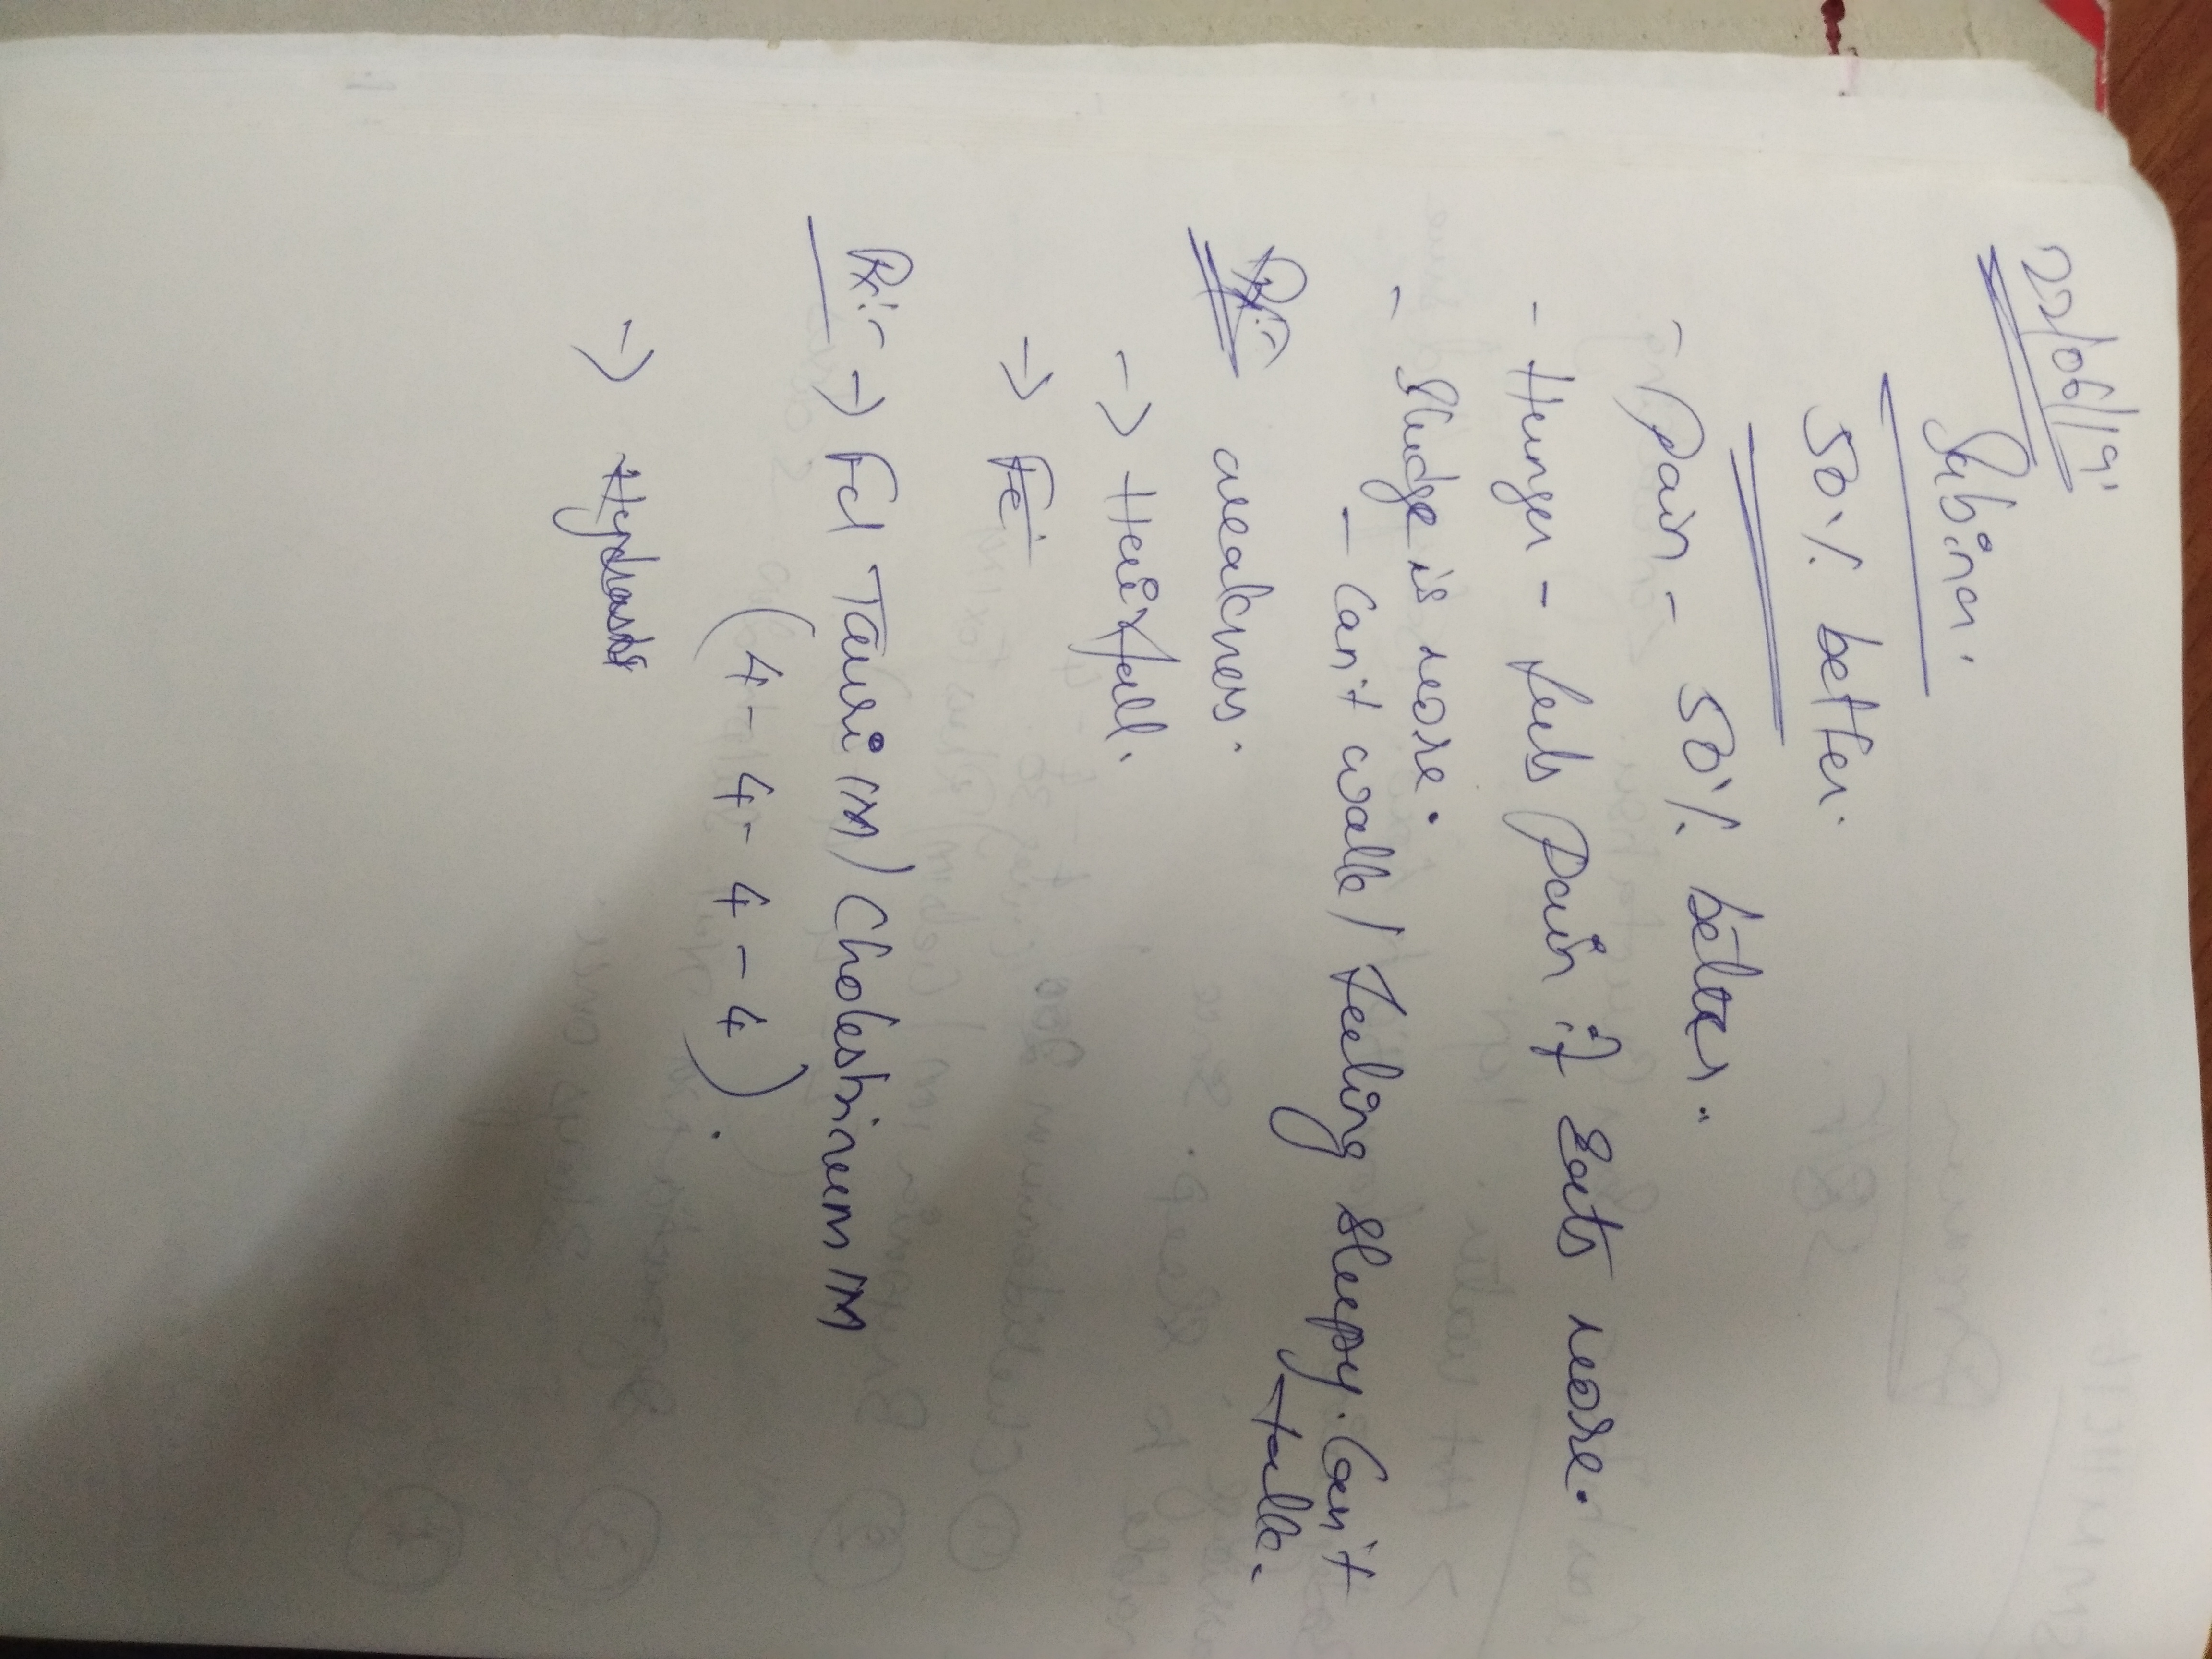 22/06/19'
Subina.
50% better.
- Pain - 50% better.
- Hunger - feels Pain if Eats more.
- Sludge is more.
- Can't walk / Feeling Sleepy. Can't talk.
weakness.
→ Hair fall.
→ Fe
Rx:- → Fel Tauri 1M / Cholestrinum 1M
(4 - 4 - 4 - 4).
→